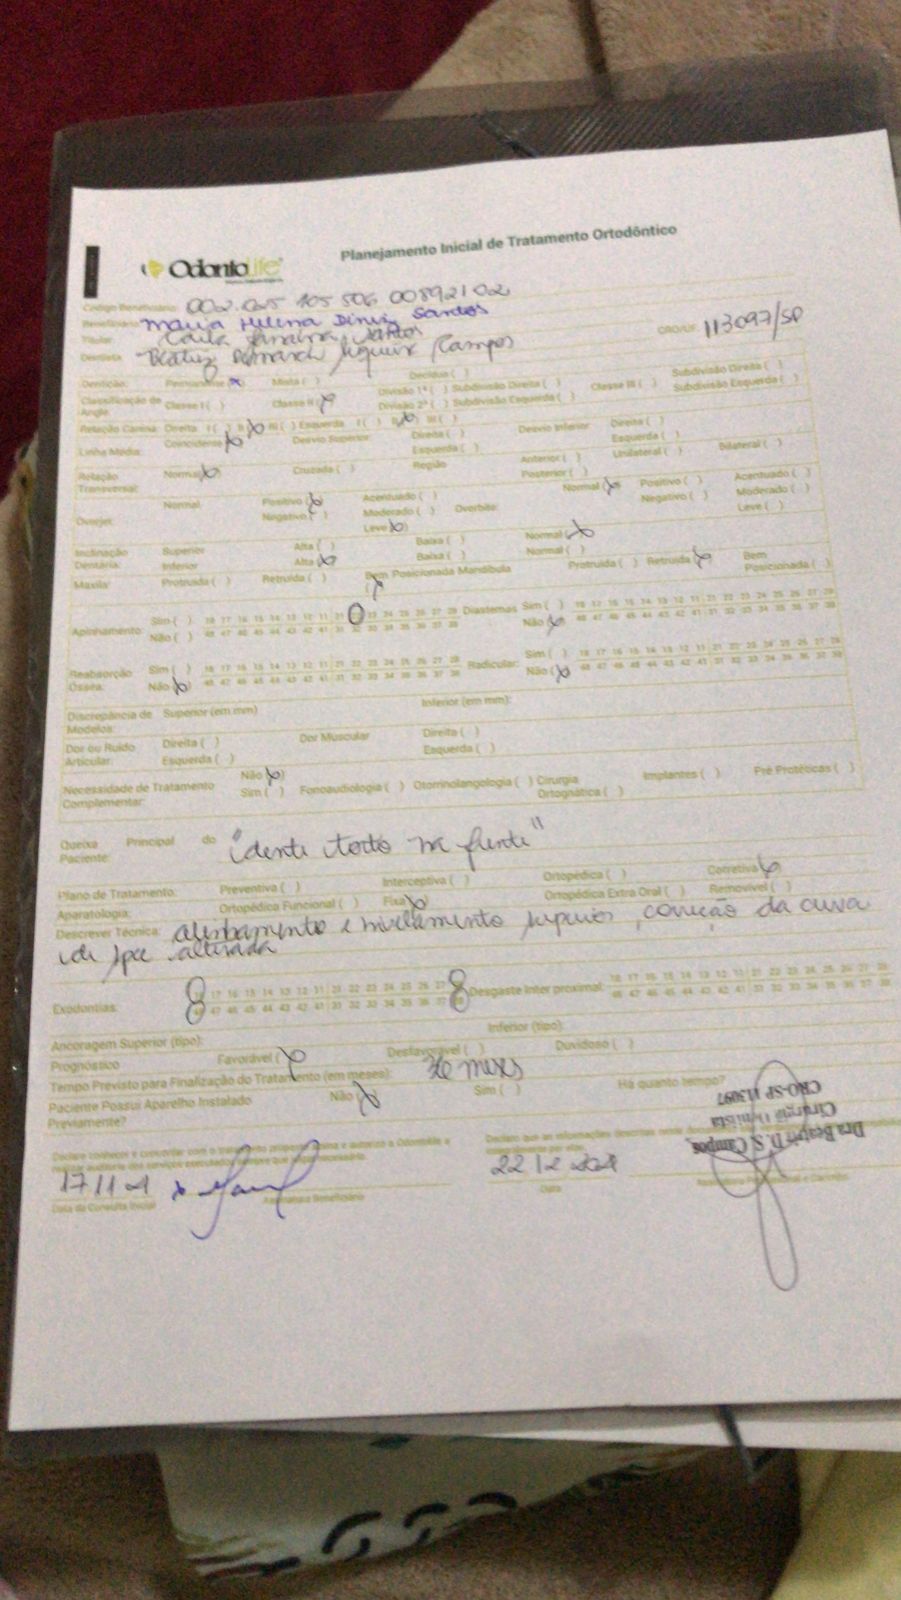 OdontoLife
Planejamento Inicial de Tratamento Ortodôntico
Código Beneficiário: 002.025 105 506 00892102
Beneficiário: Maria Helena Diniz Santos
Titular: Carla Janaina Santos
Dentista: Beatriz Campos CRO/UF: 113097/SP
Dentição: Permanente (x) Mista ( ) Decídua ( )
Classificação de Angle: Classe I ( ) Classe II (x) Divisão 1ª ( ) Subdivisão Direita ( ) Classe III ( ) Subdivisão Direita ( )
Divisão 2ª ( ) Subdivisão Esquerda ( ) Subdivisão Esquerda ( )
Relação Canina: Direita I ( ) II (x) III ( ) Esquerda I ( ) II (x) III ( )
Linha Média: Coincidente (x) Desvio Superior: Direita ( ) Desvio Inferior: Direita ( )
Esquerda ( ) Esquerda ( )
Relação Transversal: Normal (x) Cruzada ( ) Região Anterior ( ) Unilateral ( ) Bilateral ( )
Posterior ( )
Overjet: Normal Positivo (x) Acentuado ( ) Overbite: Normal (x) Positivo ( ) Acentuado ( )
Negativo ( ) Moderado ( ) Negativo ( ) Moderado ( )
Leve (x) Leve ( )
Inclinação Dentária: Superior Alta ( ) Baixa ( ) Normal (x)
Inferior Alta (x) Baixa ( ) Normal ( )
Maxila: Protruída ( ) Retruída ( ) Bem Posicionada (x) Mandíbula Protruída ( ) Retruída (x) Bem Posicionada ( )
Apinhamento: Sim ( ) 18 17 16 15 14 13 12 11 21 22 23 24 25 26 27 28 Diastemas: Sim ( ) 18 17 16 15 14 13 12 11 21 22 23 24 25 26 27 28
Não ( ) 48 47 46 45 44 43 42 41 31 32 33 34 35 36 37 38 Não (x) 48 47 46 45 44 43 42 41 31 32 33 34 35 36 37 38
Reabsorção Óssea: Sim ( ) 18 17 16 15 14 13 12 11 21 22 23 24 25 26 27 28 Radicular: Sim ( ) 18 17 16 15 14 13 12 11 21 22 23 24 25 26 27 28
Não (x) 48 47 46 45 44 43 42 41 31 32 33 34 35 36 37 38 Não (x) 48 47 46 45 44 43 42 41 31 32 33 34 35 36 37 38
Discrepância de Modelos: Superior (em mm) Inferior (em mm):
Dor ou Ruído Articular: Direita ( ) Dor Muscular Direita ( )
Esquerda ( ) Esquerda ( )
Necessidade de Tratamento Complementar: Não (x)
Sim ( ) Fonoaudiologia ( ) Otorrinolangologia ( ) Cirurgia Ortognática ( ) Implantes ( ) Pré Protéticas ( )
Queixa Principal do Paciente: "dente torto na frente"
Plano de Tratamento: Preventiva ( ) Interceptiva ( ) Ortopédica ( ) Corretiva (x)
Aparatologia: Ortopédica Funcional ( ) Fixa (x) Ortopédica Extra Oral ( ) Removível ( )
Descrever Técnica: alinhamento e nivelamento superior, correção da curva
de spee alterada
Exodontias: 18 17 16 15 14 13 12 11 21 22 23 24 25 26 27 28 Desgaste Inter proximal: 18 17 16 15 14 13 12 11 21 22 23 24 25 26 27 28
48 47 46 45 44 43 42 41 31 32 33 34 35 36 37 38 48 47 46 45 44 43 42 41 31 32 33 34 35 36 37 38
Ancoragem Superior (tipo): Inferior (tipo):
Prognóstico Favorável (x) Desfavorável ( ) Duvidoso ( )
Tempo Previsto para Finalização do Tratamento (em meses): meses
Paciente Possui Aparelho Instalado Previamente? Não (x) Sim ( ) Há quanto tempo?
CRO-SP 113097
Cirurgiã Dentista
Dra Beatriz D. S. Campos
17 11 21
22 12 2021
Data da Consulta Inicial
Assinatura Beneficiário
Data